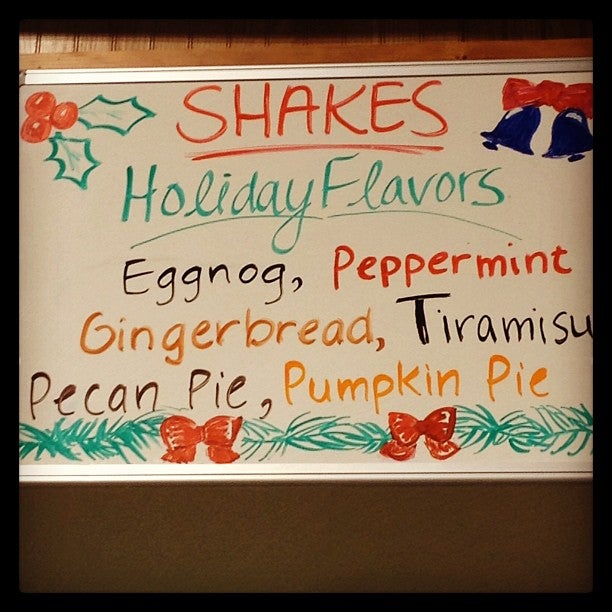 SHAKES
Holiday Flavors
Eggnog, Peppermint
Gingerbread, Tiramisu
Pecan Pie, Pumpkin Pie